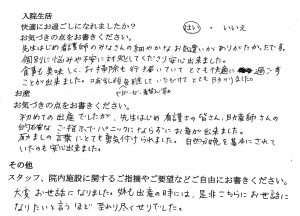 入院生活
快適にお過ごしになれましたか？ はい ・ いいえ
お気づきの点をお書きください。
先生はじめ看護師のみなさんの細やかなお気遣いがありがたかったです。
個別に悩みや不安に対処してくださり安心出来ました。
食事も美味しく、お掃除も行き届いていてとても快適に過ごす
ことが出来ました。
お産
お気づきの点をお書きください。
初めての出産でしたが、先生はじめ看護士の皆さん、助産師さんの
ご指示でパニックにならずにお産が出来ました。
励ましの言葉にとても勇気付けられました。自然分娩を基本にされて
いたのも安心出来ました。
その他
スタッフ、院内施設に関するご指摘やご要望などご自由にお書きください。
大変お世話になりました。次も出産の時には、是非こちらにお世話に
なりたいと言うほど至れり尽くせりでした。